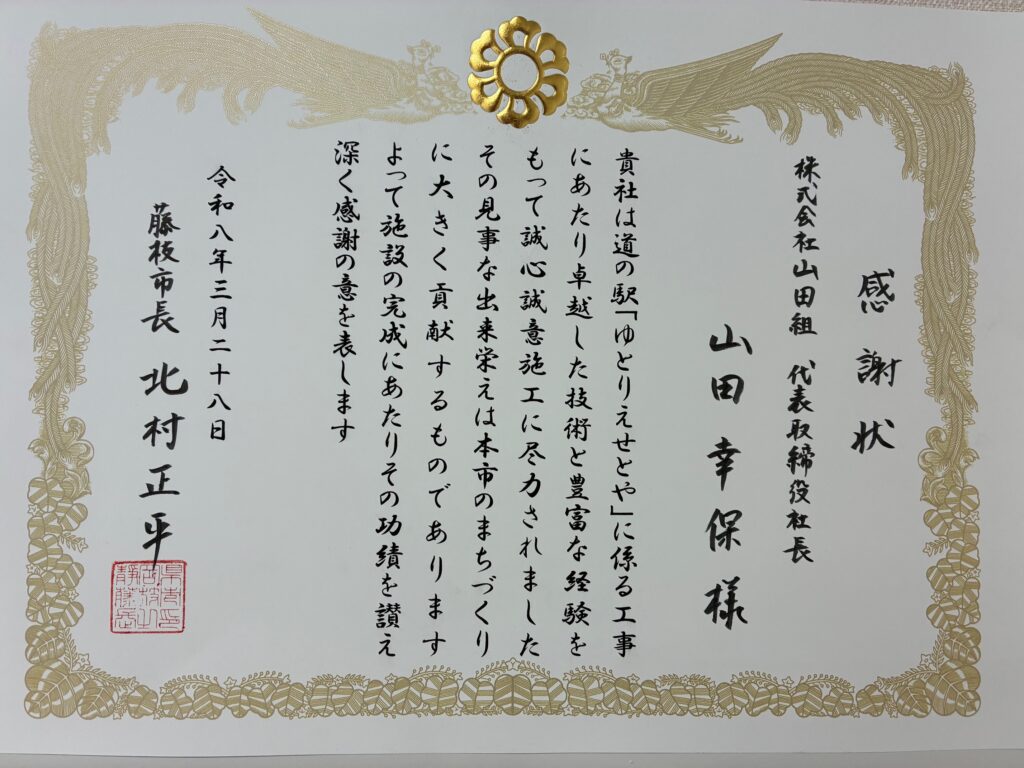 感謝状
株式会社山田組 代表取締役社長
山田幸保様
貴社は道の駅「ゆとりえせとや」に係る工事
にあたり卓越した技術と豊富な経験を
もって誠心誠意施工に尽力されました
その見事な出来栄えは本市のまちづくり
に大きく貢献するものであります
よって施設の完成にあたりその功績を讃え
深く感謝の意を表します
令和八年三月二十八日
藤枝市長 北村正平